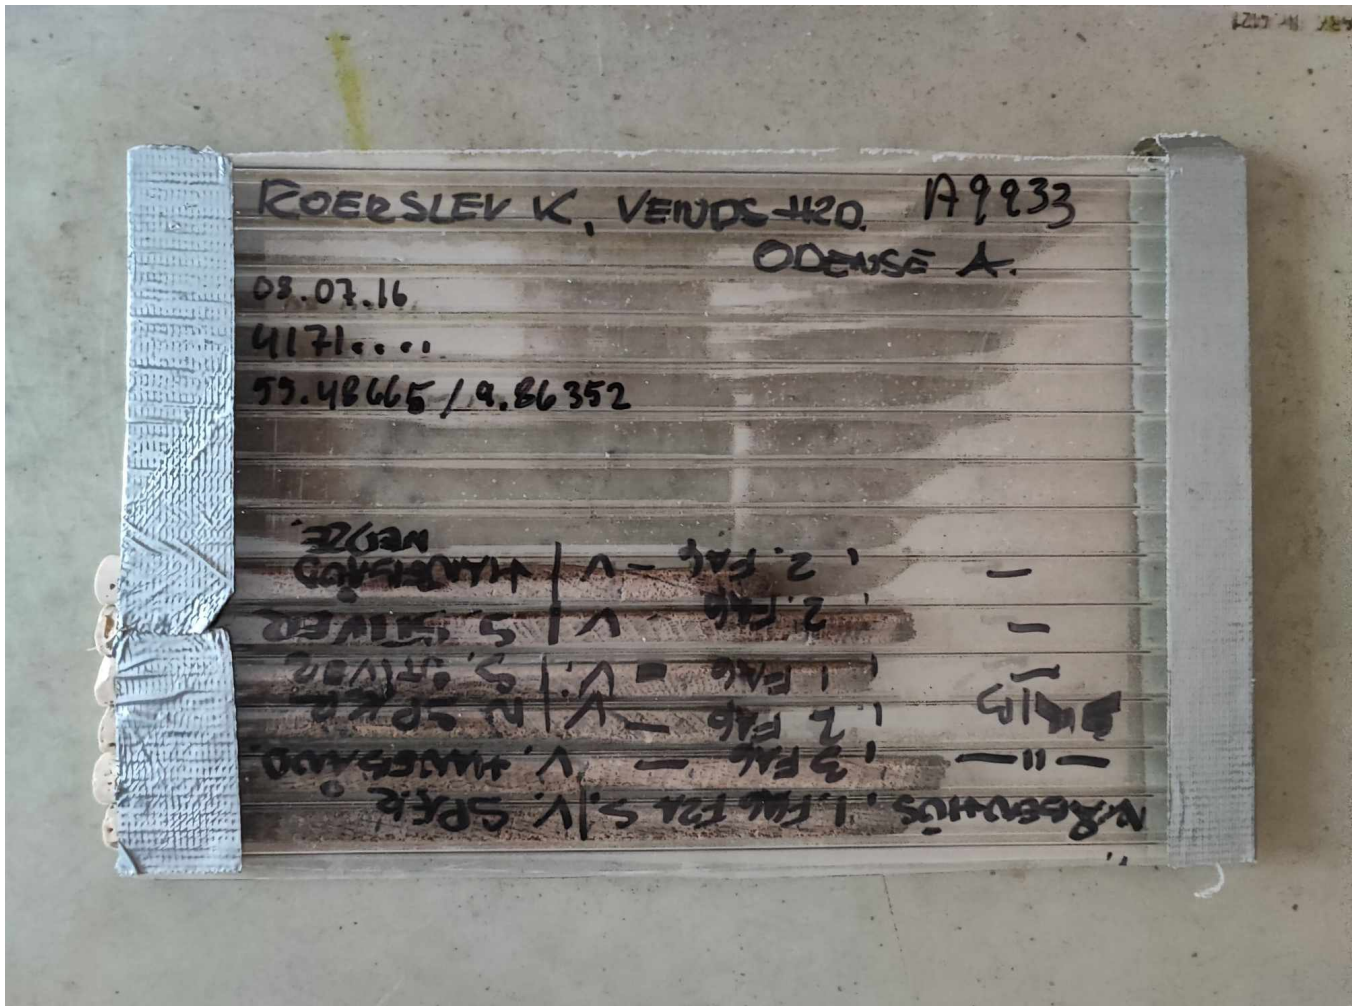 ROERSLEV K, VENDS HRD. A9933
ODENSE A.
08.07.16
4171....
55.48665 / 9.86352
N. ÅBENHUS, 1. FAG FRA S/V. SPÆR
— " — , 3 FAG — V. HANEBÅND.
, 2 FAG — V. / N SPÆR
, 1 FAG — V. / S. STIVER
— , 2. FAG V / S. STIVER
— , 2. FAG — V / HANEBÅND
NEDRE.